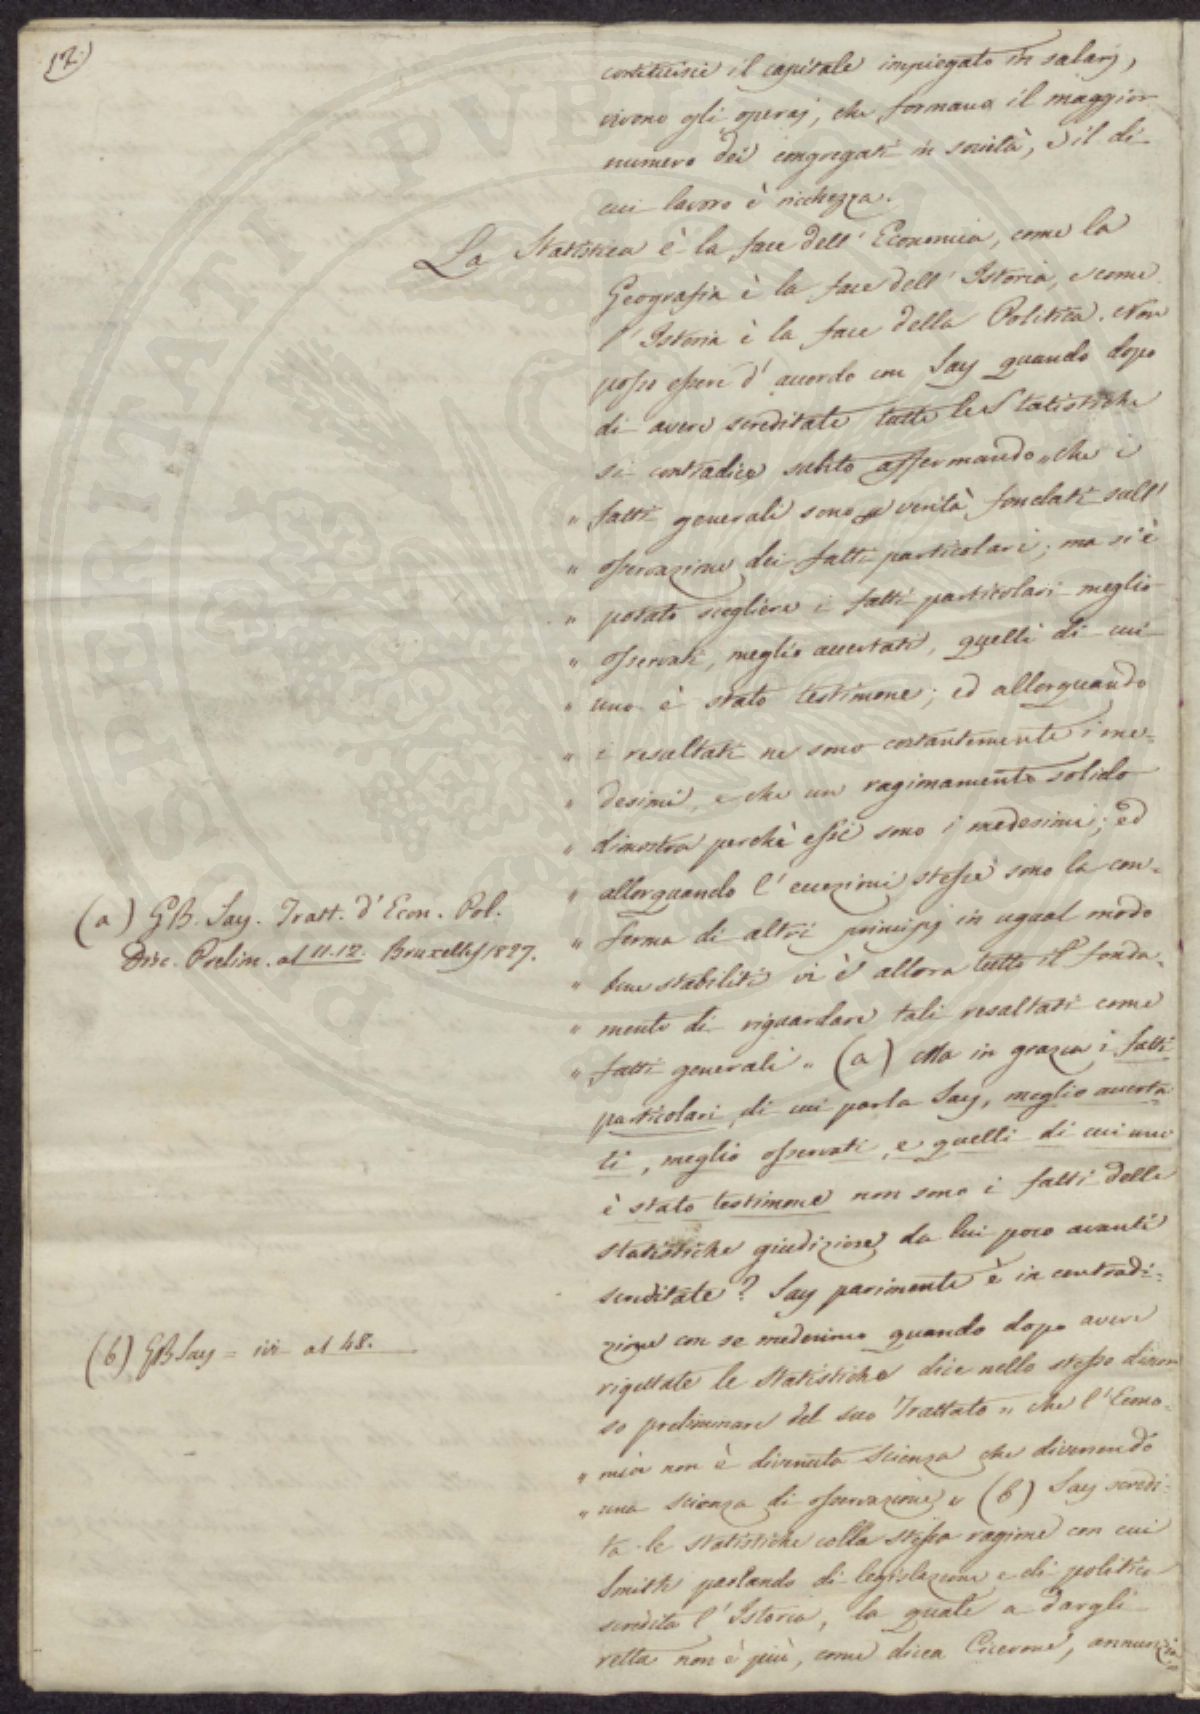 (2.)
costituisce il capitale impiegato in salarj,
vivono gli operaj, che formano il maggior
numero dei congregati in società, e il di
cui lavoro è ricchezza.
La Statistica è la face dell' Economia, come la
Geografia è la face dell' Istoria, e come
l' Istoria è la face della Politica. Non
posso essere d' accordo con Say quando dopo
di avere screditate tutte le Statistiche
si contradice subito affermando „ che i
„ fatti generali sono verità fondati sull'
„ osservazione dei fatti particolari; ma si è
„ potuto scegliere i fatti particolari meglio
„ osservati, meglio accertati, quelli di cui
„ uno è stato testimone; ed allorquando
„ i resultati ne sono costantemente i me=
„ desimi, e che un ragionamento solido
„ dimostra perchè essi sono i medesimi; ed
„ allorquando l' eccezioni stesse sono la con=
„ ferma di altri principj in ugual modo
„ bene stabiliti vi è allora tutto il fonda=
„ mento di riguardare tali resultati come
„ fatti generali „ (a) Ma in grazia i fatti
particolari di cui parla Say, meglio accerta=
ti, meglio osservati, e quelli di cui uno
è stato testimone non sono i fatti delle
statistiche giudiziose da lui poco avanti
screditate? Say parimente è in contradi=
zione con se medesimo quando dopo avere
rigettate le Statistiche dice nello stesso discor
so preliminare del suo Trattato „ che l' Econo=
„ mia non è divenuta scienza che divenendo
„ una scienza di osservazione „ (b) Say scredi=
ta le statistiche colla stessa ragione con cui
Smith parlando di legislazione e di politica
scredita l' Istoria, la quale a dargli
retta non è più, come dicea Cicerone, annunzia=
(a) GB. Say. Tratt. d' Econ. Pol.
Disc. Prelim. al 11.12. Bruxelles 1827.
(b) GB Say = ivi al 48.